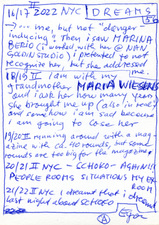 16/17 II 2022 NYC DREAMS
→... me, but not "danger
inducing". Then I saw MARINA
BERIO (I worked with her @ NAN
GOLDIN STUDIO) I pretended to not
recognise her, but she addressed
me.
18/19 II I am with my
grandmother MARIA
and I ask her how many years
she brought me up (also in
and how I am sad because
I am going to lose her.
19/20 II running around with a mag-
azine with ca. 40 rounds, but some
rounds are too big for the magazine.
20/21 II NYC - - AGAIN IN
PEOPLE ROOMS SITUATIONS MY EX
ROOM
21/22 II NYC I dreamt that I dreamt
last night about